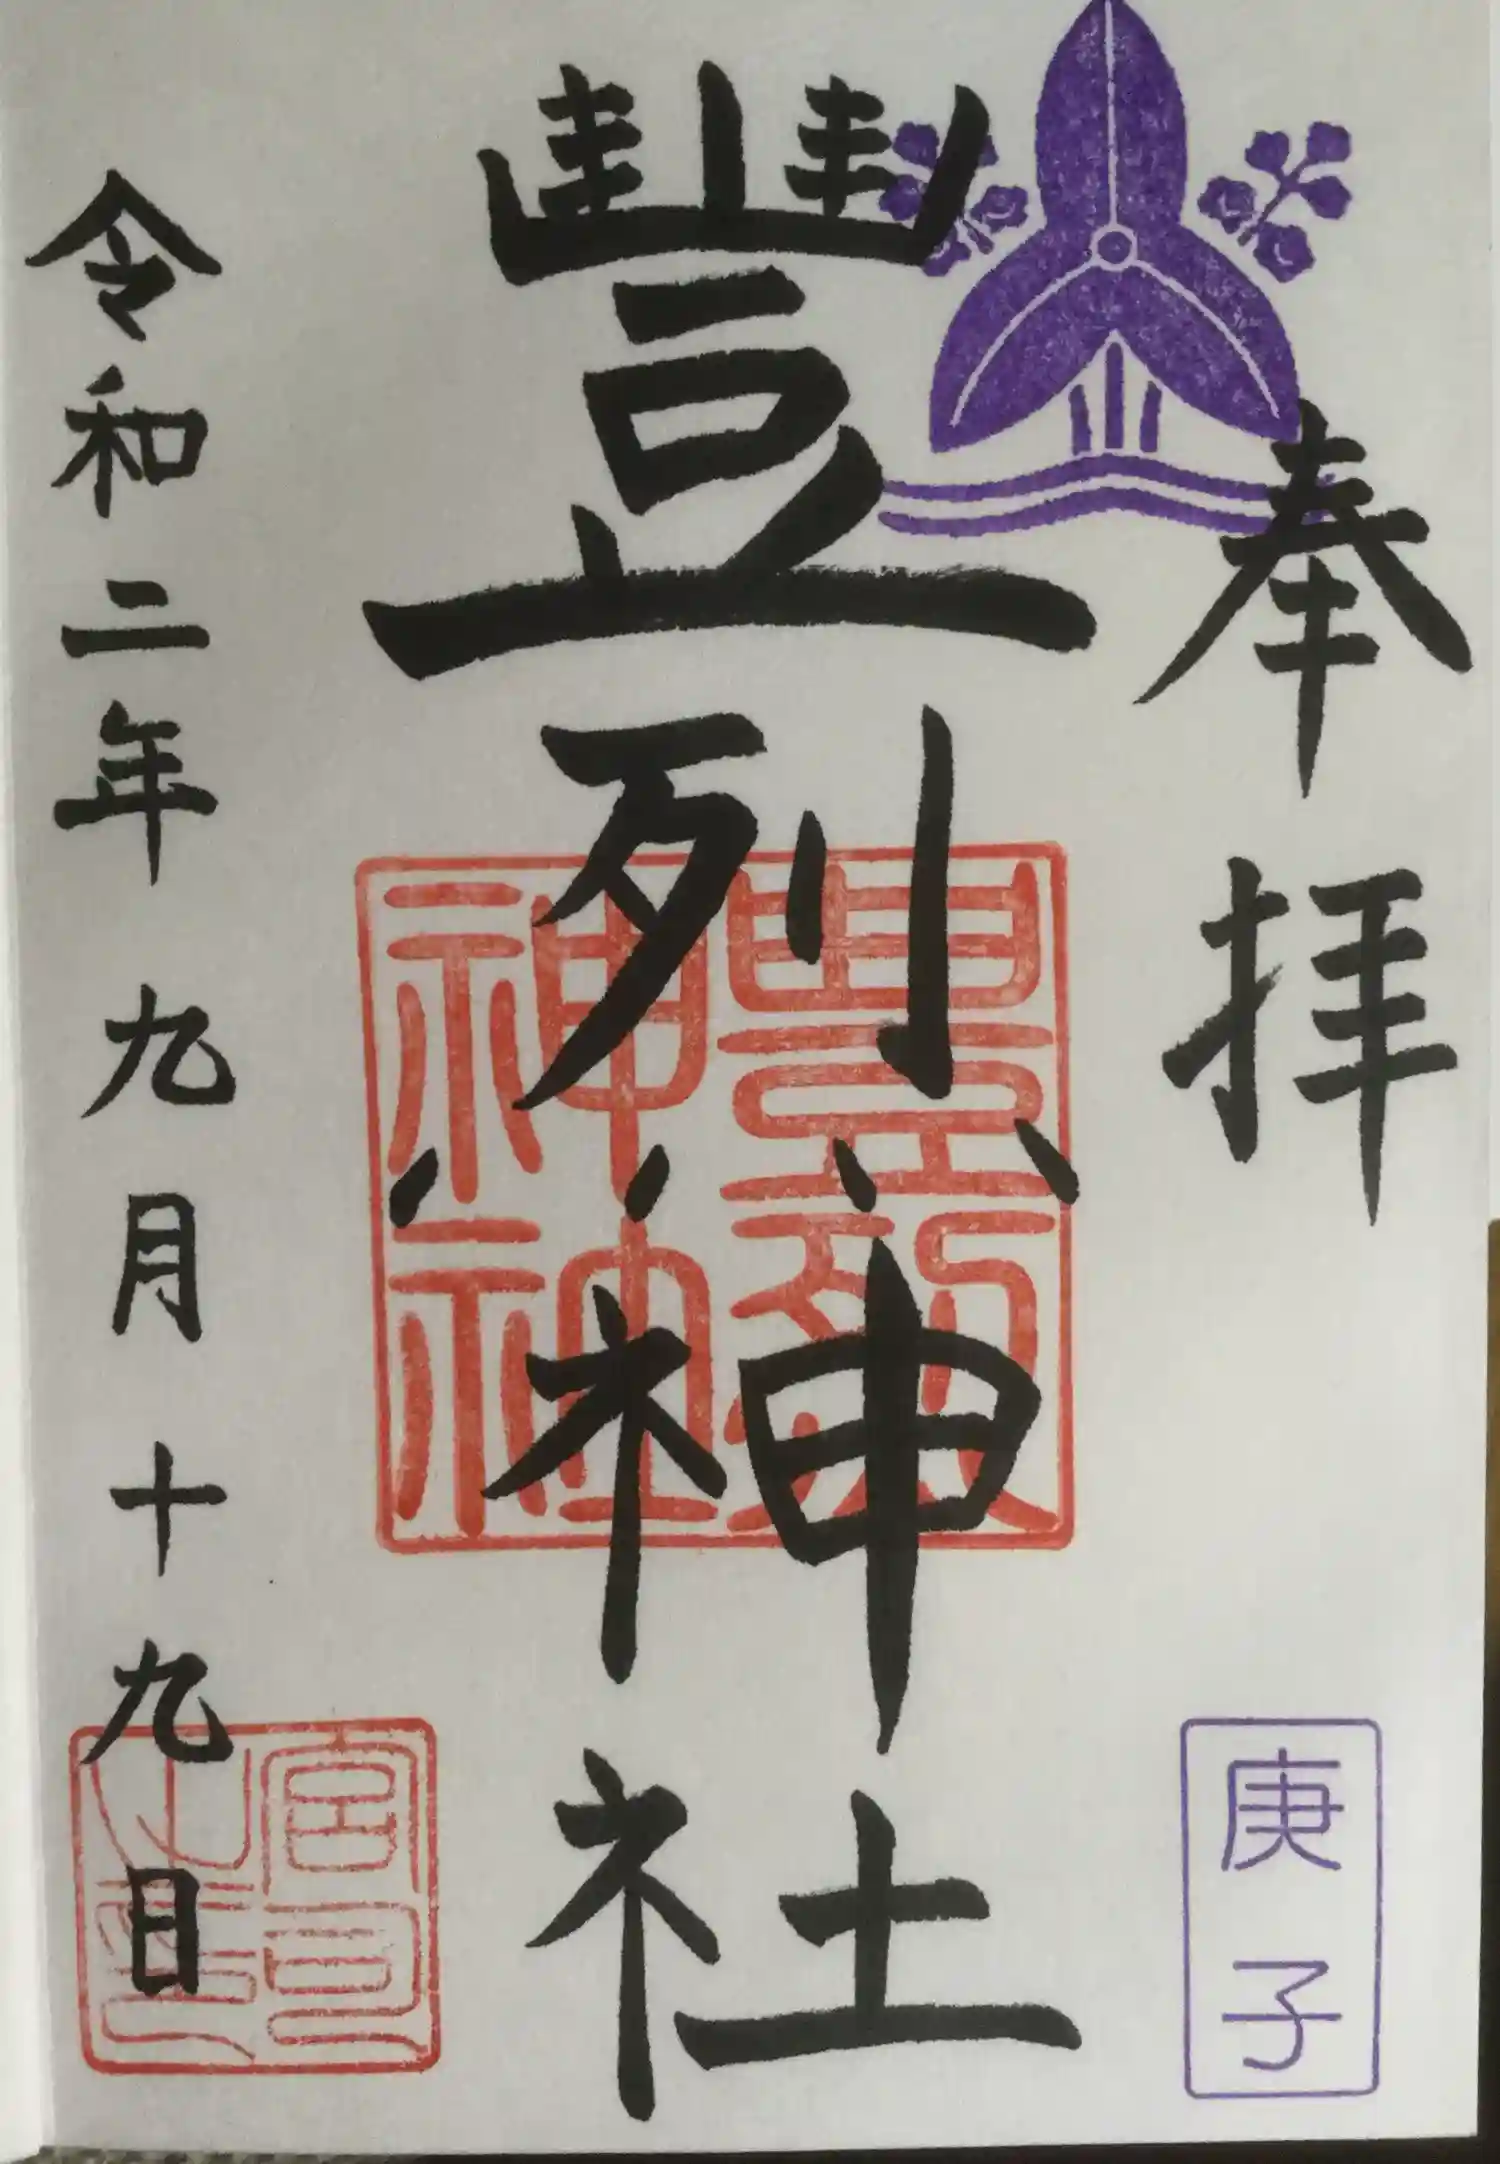 奉拝
庚子
豐烈神社
豊烈神社
令和二年九月十九日
宮司之印